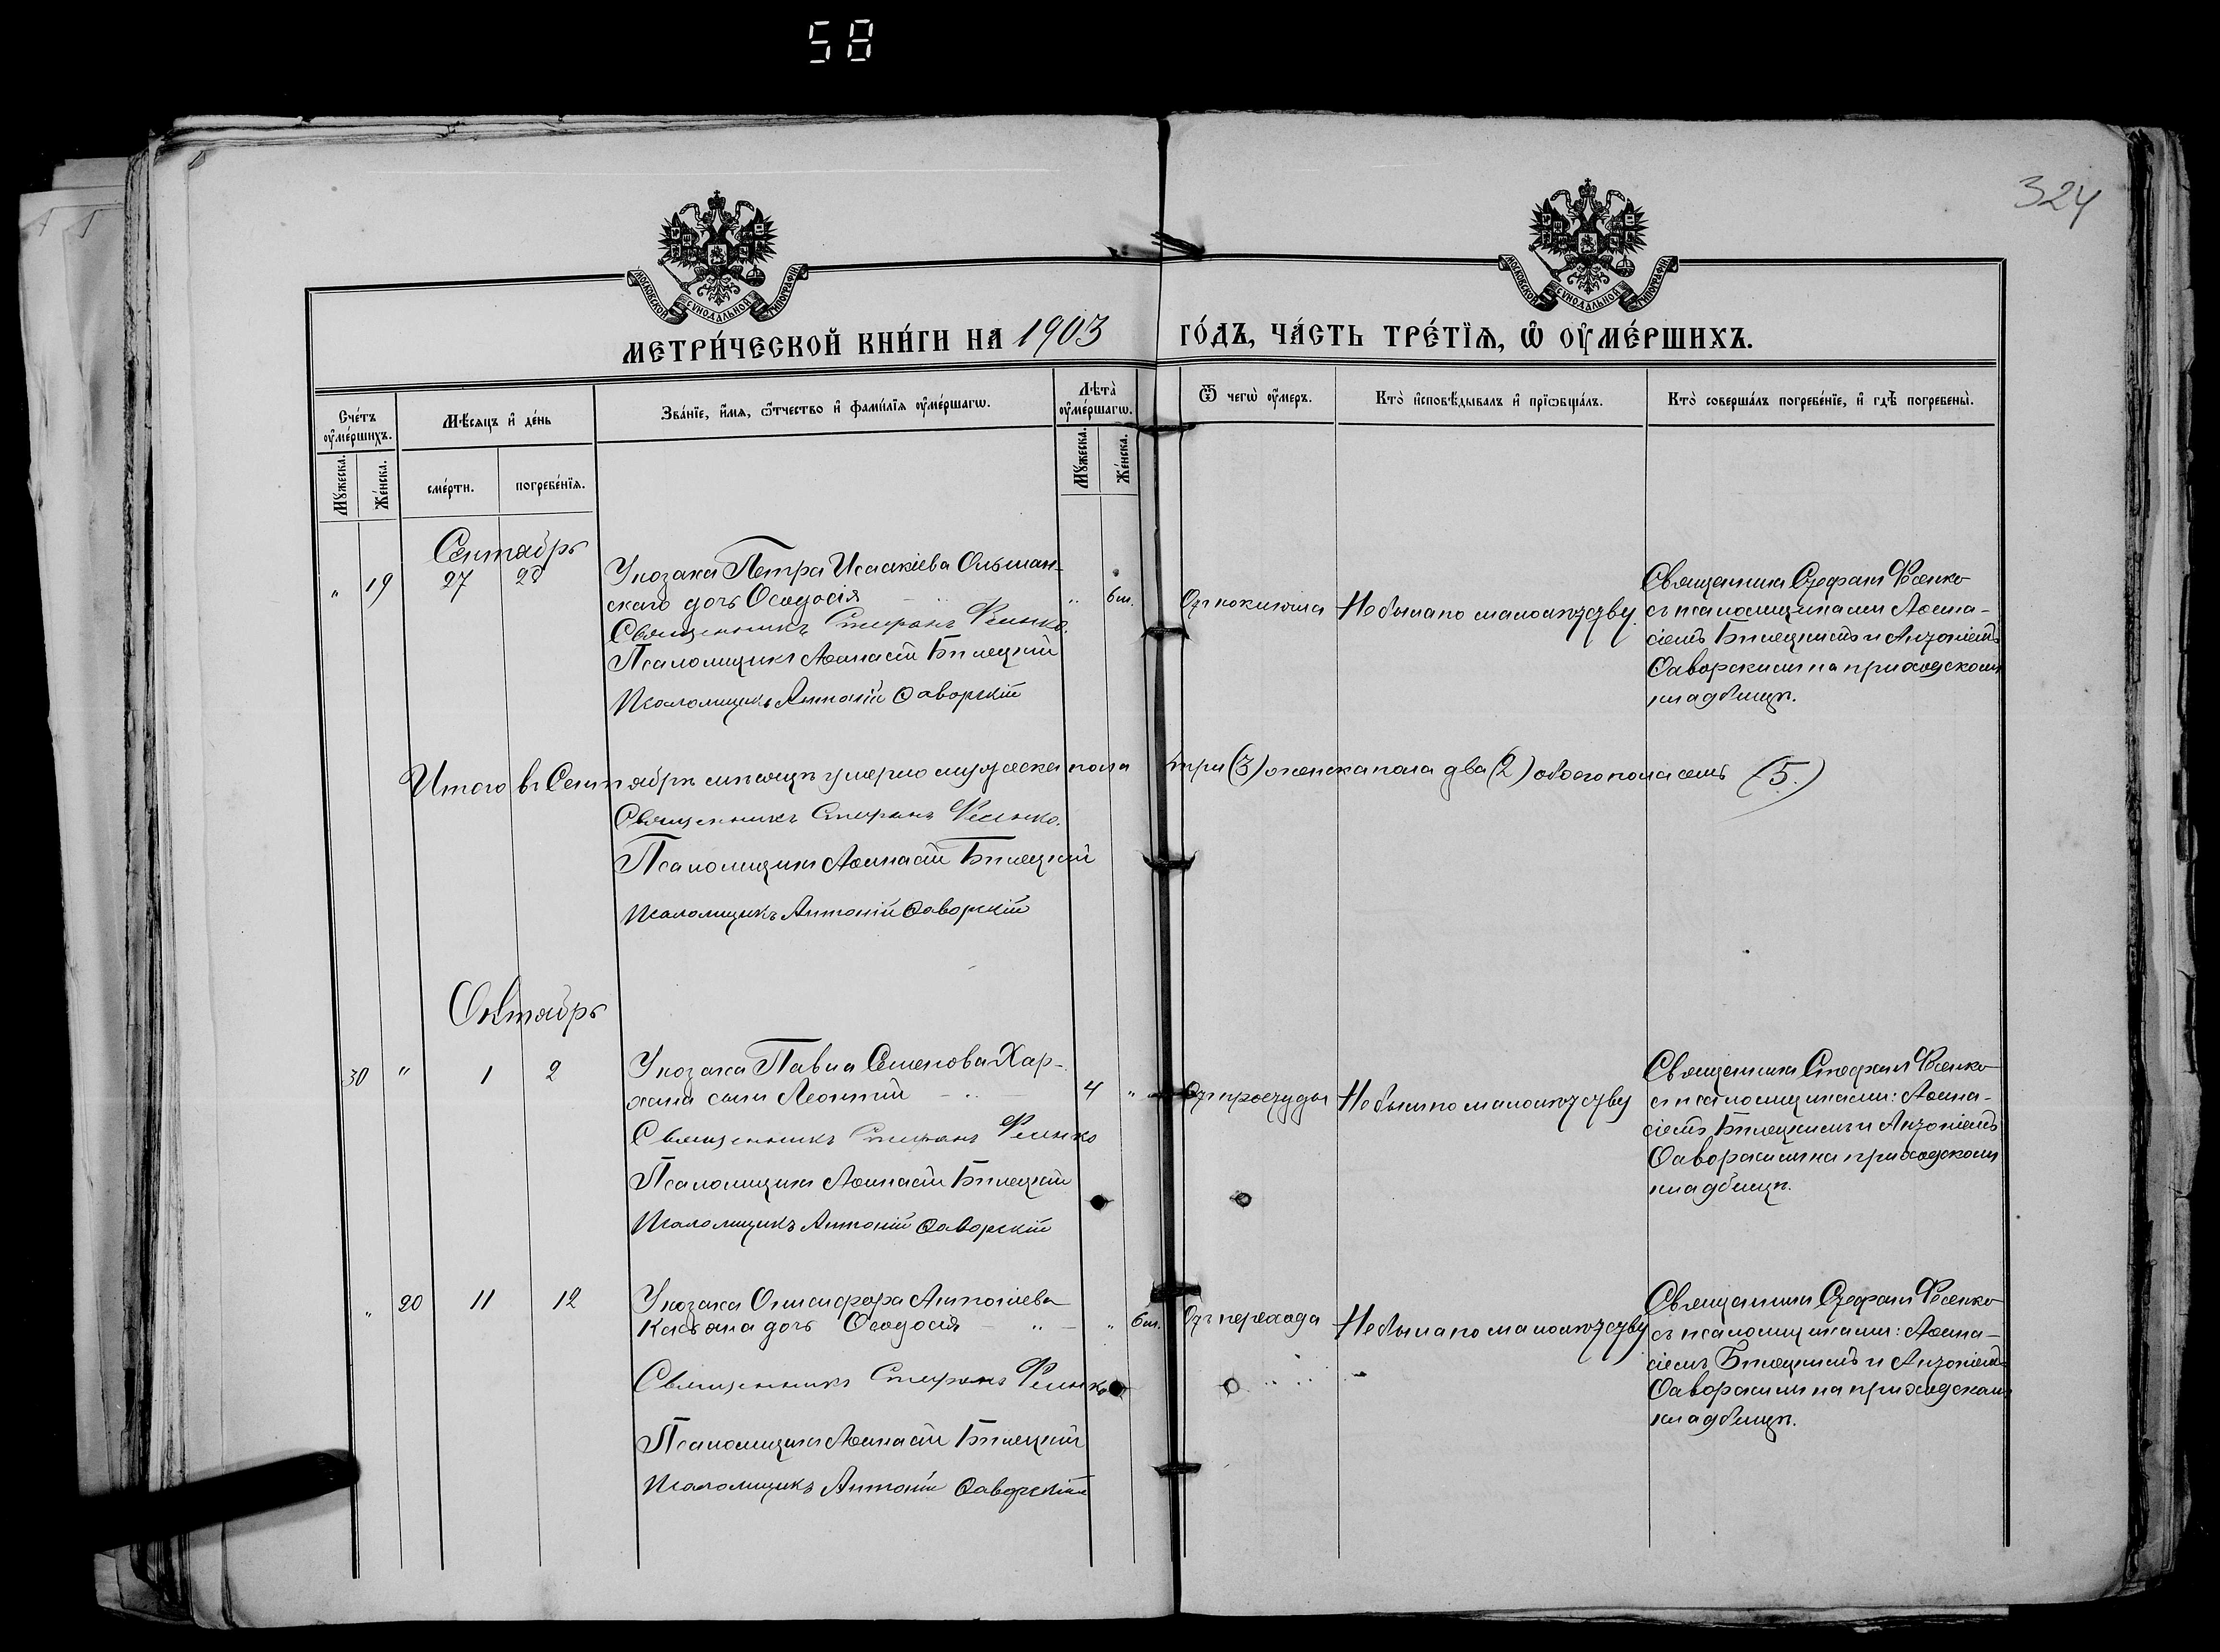 58
324
МОСКОВСКОЙ СУНОДАЛЬНОЙ ТИПОГРАФІИ
МОСКОВСКОЙ СУНОДАЛЬНОЙ ТИПОГРАФІИ
МЕТРИ́ЧЕСКОЙ КНИ́ГИ НА 1903 ГО́ДЪ, ЧА́СТЬ ТРЕ́ТЇѦ, Ѡ҆ ОУ҆МЕ́РШИХЪ.
Сче́тъ оу҆ме́ршихъ.
Мꙋжеска.
Же́нска.
Мѣ́сяцъ и҆ де́нь
сме́рти.
погребе́нїѧ.
Зва́нїе, и҆́мѧ, ѻ҆́тчество и҆ фами́лїѧ оу҆ме́ршагѡ.
Лѣта̀ оу҆ме́ршагѡ.
Мꙋжеска.
Же́нска.
Ѿ чегѡ̀ оу҆́меръ.
Кто̀ и҆сповѣ́дывалъ и҆ прїѡбща́лъ.
Кто̀ соверша́лъ погребе́нїе, и҆ гдѣ̀ погребены̀.
Сентябрь
" 19 27 28
У козака Петра Исаакіева Ольшан-
скаго дочь Ѳеодосія " 6 м.
Священникъ Стефанъ Фесенко.
Псаломщикъ Аѳанасій Бѣлецкій
Псаломщикъ Антоній Ѳаворскій
Отъ коклюша
Не была по малолѣтству.
Священникъ Стефанъ Фесенко
съ псаломщиками Аѳана-
сіемъ Бѣлецкимъ и Антоніемъ
Ѳаворскимъ на приходскомъ
кладбищѣ.
Итого въ Сентябрѣ мѣсяцѣ умерло мужеска пола три (3) женска пола два (2) обоего пола семь (5.)
Священникъ Стефанъ Фесенко.
Псаломщикъ Аѳанасій Бѣлецкій
Псаломщикъ Антоній Ѳаворскій
Октябрь
30 " 1 2
У козака Павла Семенова Хар-
сынъ Леонтій 4 "
Священникъ Стефанъ Фесенко
Псаломщикъ Аѳанасій Бѣлецкій
Псаломщикъ Антоній Ѳаворскій
Отъ простуды
Не былъ по малолѣтству
Священникъ Стефанъ Фесенко
съ псаломщиками: Аѳана-
сіемъ Бѣлецкимъ и Антоніемъ
Ѳаворскимъ на приходскомъ
кладбищѣ.
" 20 11 12
У козака Онисифора Антоніева
Касьяна дочь Ѳеодосія " " 6 м.
Священникъ Стефанъ Фесенко
Псаломщикъ Аѳанасій Бѣлецкій
Псаломщикъ Антоній Ѳаворскій
Отъ перехода
Не была по малолѣтству
Священникъ Стефанъ Фесенко
съ псаломщиками: Аѳана-
сіемъ Бѣлецкимъ и Антоніемъ
Ѳаворскимъ на приходскомъ
кладбищѣ.